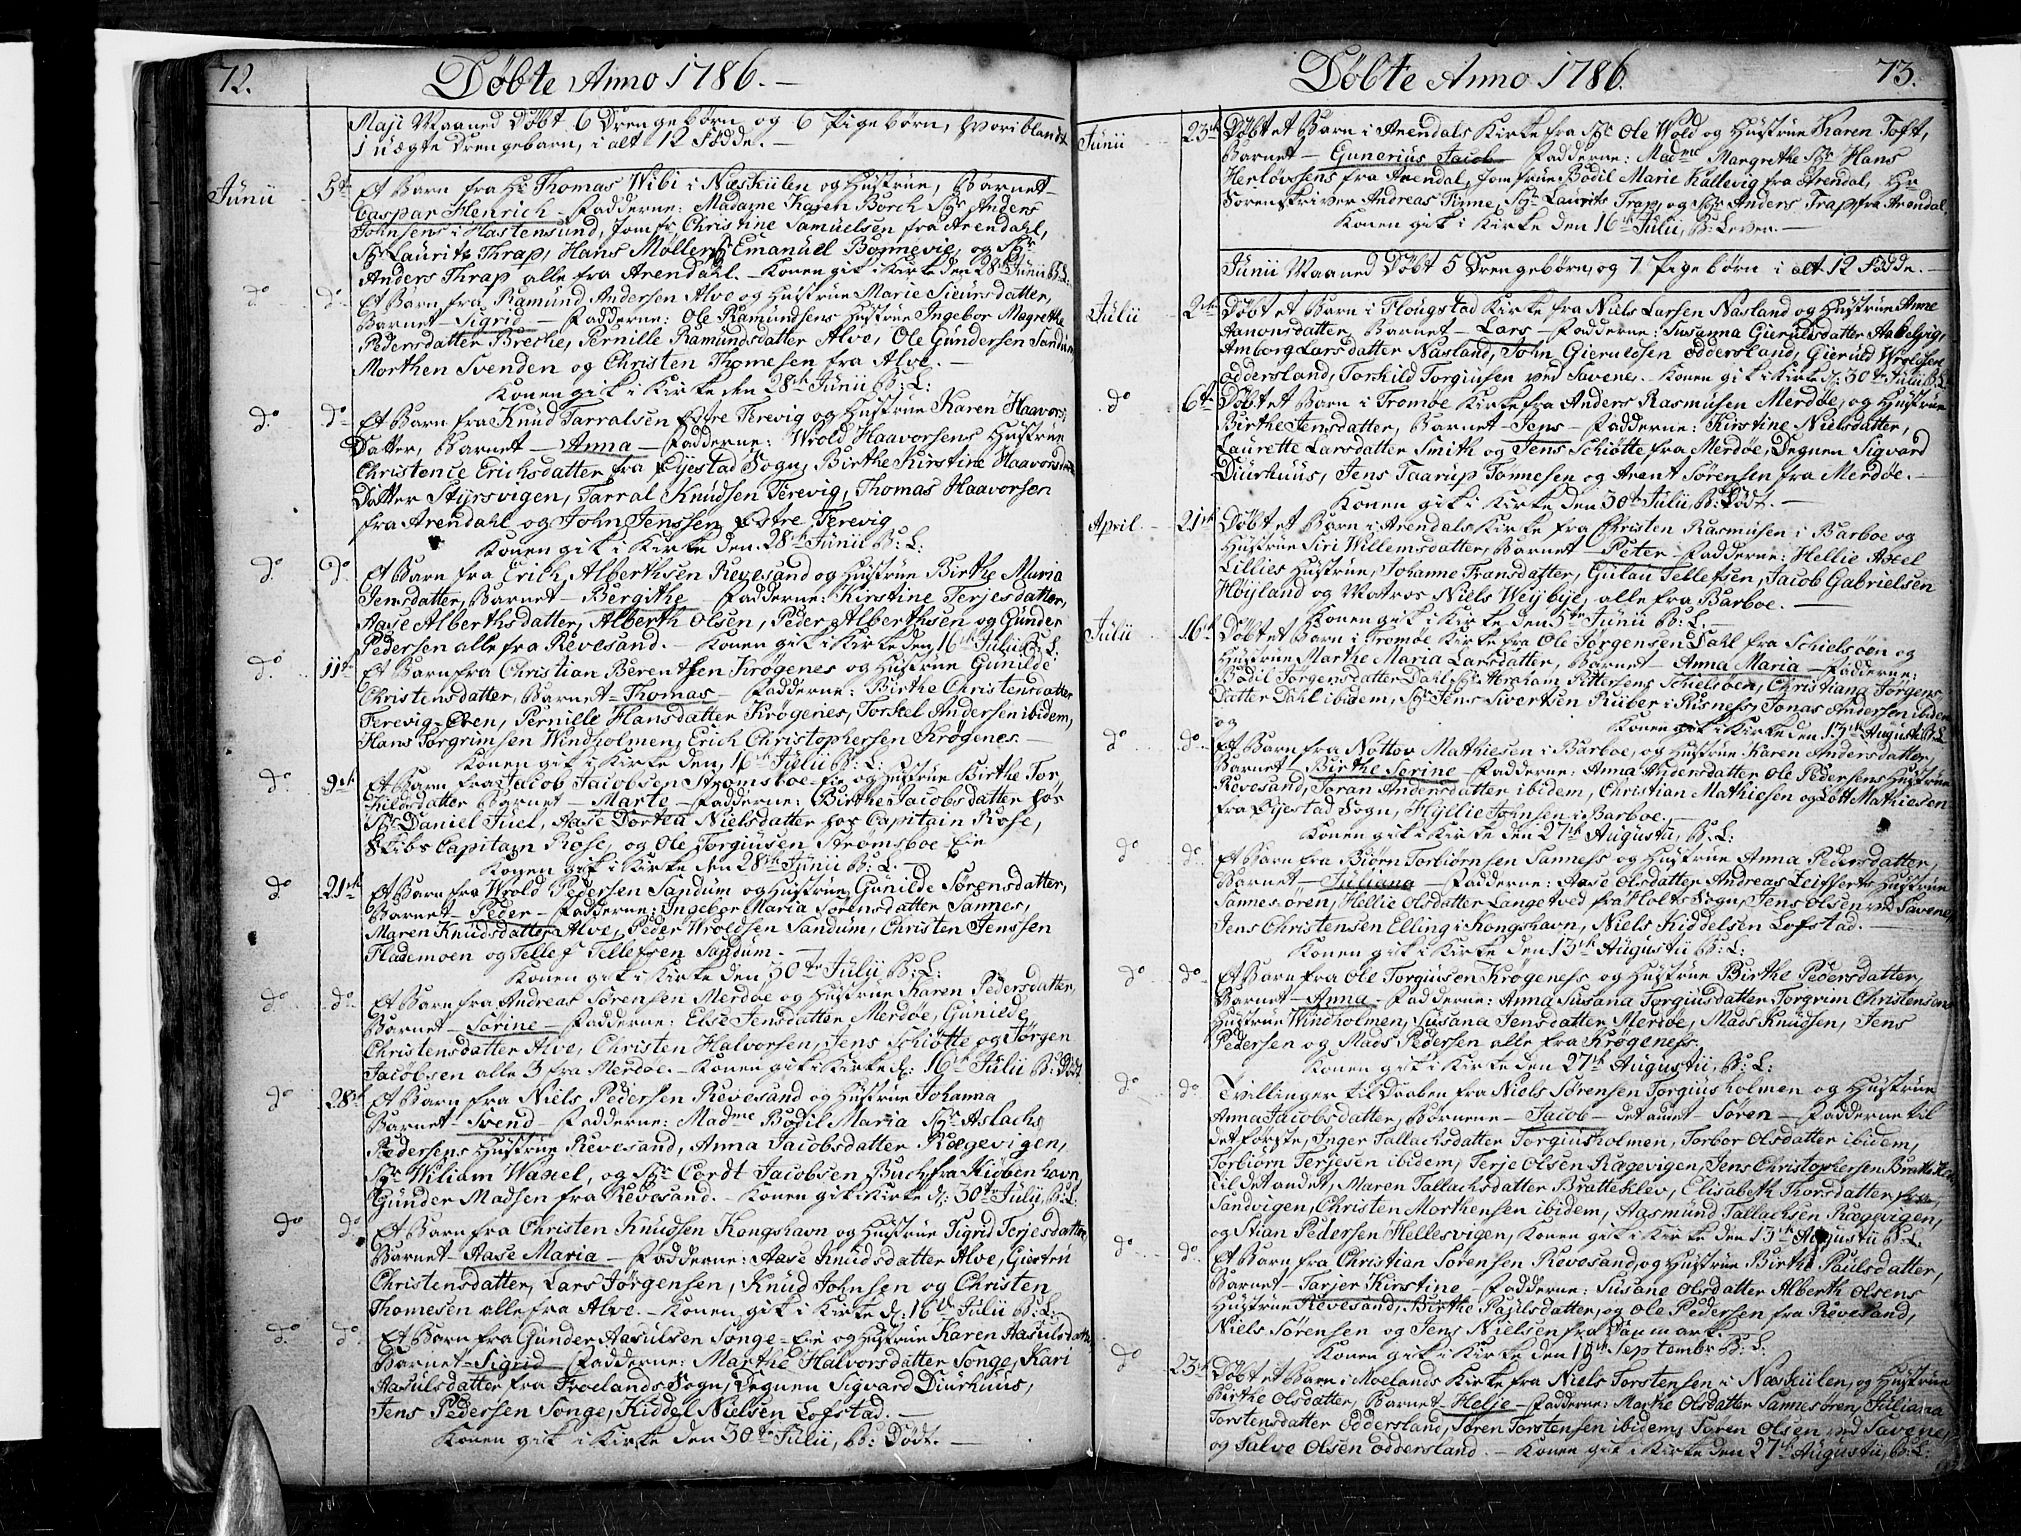 72. Døbte Anno 1786.
Maji Maaned Døbt 6 Drengebørn og 6 Pigebørn, hvoriblandt
1 uægte Drengebarn, i alt 12 Fødde.
Junii 5te Et Barn fra Hr Thomas Wibi i Næskiilen og Hustrue, Barnet
Caspar Henrich Fadderne: Madame Karen Borch Sr Anders
Johnsens i Hastensund, Jomfr Christine Samuelsen fra Arendahl,
Sr Laurits Thrap, Hans Møller, Emanuel Bonnevie, og Sr
Anders Thrap alle fra Arendahl. Konen gik i Kirke den 28 Junii B:L:
do do Et Barn fra Ramund Andersen Alve og Hustrue Marie Sieursdatter,
Barnet Sigrid Fadderne: Ole Ramundsens Hustrue Ingebor Magrethe
Pedersdatter Breske, Pernille Ramundsdatter Alve, Ole Gundersen Sandum
Morthen Svenden og Christen Thomesen fra Alve.
Konen gik i Kirke den 28de Junii B:L:
do do Et Barn fra Knud Tarralsen Estre Terevig og Hustrue Karen Haavors
Datter, Barnet Anna Fadderne: Wrold Haavorsens Hustrue
Christence Erichsdatter fra Øyestad Sogn, Birthe Kirstine Haavors
Datter Styrsvigen, Tarral Knudsen Terevig, Thomas Haavorsen
fra Arendahl og John Jenssen Estre Terevig
Konen gik i Kirke den 28de Junii B:L:
do Do Et Barn fra Erich Alberthsen Revesand og Hustrue Birthe Maria
Jensdatter, Barnet Bergithe Fadderne: Kirstine Terjesdatter,
Aase Alberthsdatter, Alberth Olsen, Peder Alberthsen og Gunder
Pedersen alle fra Revesand. Konen gik i Kirke den 16de Julii B:L:
do 11te Et Barn fra Christian Berenthsen Krøgenes og Hustrue Gunilde
Christensdatter, Barnet Thomas Fadderne: Birthe Christensdatter
Terevig-Even, Pernille Hansdatter Krøgenes, Torkel Andersen ibidem,
Hans Torgrimsen Windholmen, Erich Christophersen Krøgenes.
Konen gik i Kirke den 16de Julii B:L:
do 9de Et Barn fra Jacob Jacobsen Strømsboe-Eie og Hustrue Birthe Tor
Kildsdatter Barnet Marte Fadderne: Birthe Jacobsdatter hos
Sr Daniel Juel, Aase Dortea Nielsdatter hos Capitain Rose,
Skibs Capitain Rose, og Ole Torgiusen Strømsboe-Eie
Konen gik i Kirke den 28de Junii B:L:
do 21de Et Barn fra Wrold Pedersen Sandum og Hustrue Gunilde Sørensdatter,
Barnet Peder Fadderne: Ingebor Maria Sørensdatter Sannes,
Maren Knudsdatter Alve, Peder Wroldsen Sandum, Christen Jenssen
Flademoen og Tellef Tellefsen Sandum.
Konen gik i Kirke den 30te Julii B:L:
do do Et Barn fra Andreas Sørensen Merdøe og Hustrue Karen Pedersdatter,
Barnet Sørine Fadderne: Else Jensdatter Merdøe, Gunilde
Christensdatter Alve, Christen Halvorsen, Jens Schiøtte og Jørgen
Jacobsen alle 3 fra Merdøe. Konen gik i Kirke d: 16de Julii B: Dødt
do 28de Et Barn fra Niels Pedersen Revesand og Hustrue Johanna
Barnet Svend Fadderne: Madme Bodil Maria Sr Aslachs
Pedersens Hustrue Revesand, Anna Jacobsdatter Rægevigen,
Sr Wiliam Waxel, og Sr Cordt Jacobsen Buch fra Kiøbenhavn
Gunder Madsen fra Revesand. Konen gik i Kirke d: 30te Julii B:L:
do do Et Barn fra Christen Knudsen Kongshavn og Hustrue Sigrid Terjesdatter,
Barnet Aase Maria Fadderne: Aase Knudsdatter Alve, Giertru
Christensdatter, Lars Jørgensen, Knud Johnsen og Christen
Thomesen alle fra Alve. Konen gik i Kirke d: 16de Julii B:L:
do do Et Barn fra Gunder Aasulsen Songe-Eie og Hustrue Karen Aasulsdatter
Barnet Sigrid Fadderne: Marthe Halvorsdatter Songe, Kari
Aasulsdatter fra Froelands Sogn, Degnen Sigvard Diurhuus,
Jens Pedersen Songe, Kiddel Nielsen Lofstad.
Konen gik i Kirke den 30te Julii, B: Dødt.
Døbte Anno 1786. 73.
Junii 23de Døbt et Barn i Arendals Kirke fra Sr Ole Wold og Hustrue Karen Toft,
Barnet Gunerius Jacob Fadderne: Madme Margrethe Sr Hans
Herløvsens fra Arendal, Jomfrue Bodil Marie Kallevig fra Arendal, Hr
Sorenskriver Andreas Finne, Sr Laurits Trap og Sr Anders Trap fra Arendal.
Konen gik i Kirke den 16de Julii, B: Lever.
Junii Maaned Døbt 5 Drengebørn, og 7 Pigebørn i alt 12 Fødde.
Julii 2den Døbt et Barn i Flougstad Kirke fra Niels Larsen Nasland og Hustrue Anne
Aanonsdatter, Barnet Lars Fadderne: Susanna Gierulsdatter Aabelvig,
Amborg Larsdatter Nasland, John Gieruldsen Eddersland, Gieruld Wroldsen
Eddersland, Torkild Torgiusen ved Savene. Konen gik i Kirke d: 30te Julii B:L:
do 6te Døbt et Barn i Tromøe Kirke fra Anders Rasmusen Merdøe, og Hustrue
Birthe Jensdatter, Barnet Jens Fadderne: Kirstine Nielsdatter,
Laurette Larsdatter Smith og Jens Schiøtte fra Merdøe, Degnen Sigvard
Diurhuus, Jens Taarup Tønnesen og Arent Sørensen fra Merdøe.
Konen gik i Kirke den 30te Julii, B: Dødt.
April 21de Døbt et Barn i Arendals Kirke fra Christen Rasmusen i Barboe og
Hustrue Siri Willemsdatter, Barnet Peter Fadderne: Hellie Axel
Lillies Hustrue, Johanne Fransdatter, Gulau Tellefsen, Jacob Gabrielsen
Høyland og Matros Niels Weybye, alle fra Barboe.
Konen gik i Kirke den 5te Junii B:L.
Julii 16de Døbt et Barn i Tromøe Kirke fra Ole Jørgensen Dahl fra Schielsøn og
Hustrue Marthe Maria Larsdatter, Barnet Anna Maria Fadderne:
Bodil Jørgensdatter Dahl, Sr Abraham Pittersens Schielsøen, Christiana Jørgens
Datter Dahl ibidem, Sr Jens Sivertsen Ruiber i Kisness, Jonas Andersen ibidem
og Konen gik i Kirke den 13de Augusti B:L
do do Et Barn fra Nottov Mathiesen i Barboe, og Hustrue Karen Andersdatter,
Barnet Birthe Sørine Fadderne: Anna Andersdatter Ole Pedersens Hustrue
Revesand, Søran Andersdatter ibidem, Christian Mathiesen og Løtt Mathiesen
fra Øyestad Sogn, Hyllie Johnsen i Barboe.
Konen gik i Kirke den 27de Augustii, B:L:
do do Et Barn fra Biørn Torbiørnsen Sanness og Hustrue Anna Pedersdatter,
Barnet Juliana Fadderne: Aase Olsdatter Andreas Leifferts Hustrue
Sannesøren, Hellie Olsdatter Langetved fra Holts Sogn, Jens Olsen ved Savene,
Jens Christensen Elling i Kongshavn, Niels Kiddelsen Lofstad.
Konen gik i Kirke den 13de Augustii B:L:
do do Et Barn fra Ole Torgiusen Krøgeness og Hustrue Birthe Pedersdatter,
Barnet Anna Fadderne: Anna Susana Torgiusdatter Torgrim Christensens
Hustrue Windholmen, Susana Jensdatter Merdøe, Mads Knudsen, Jens
Pedersen og Mads Pedersen alle fra Krøgeness.
Konen gik i Kirke den 27de Augustii, B:L:
do do Tvillinger til Daaben fra Niels Sørensen Torgiusholmen og Hustrue
Anna Jacobsdatter, Børnene Jacob det andet Søren Fadderne til
det første, Inger Tallachsdatter Torgiusholmen, Torbor Olsdatter ibidem,
Torbiørn Terjesen ibidem, Terje Olsen Rægevigen, Jens Christophersen Bratteklev
til det andet, Maren Tallachsdatter Bratteklev, Elisabeth Thorsdatter
Sandvigen, Christen Morthensen ibidem, Aasmund Tallachsen Rægevigen,
og Stian Pedersen Hellesvigen, Konen gik i Kirke den 13de Augustii B:L:
do do Et Barn fra Christian Sørensen Revesand, og Hustrue Birthe Paulsdatter,
Barnet Tarjer Kirstine Fadderne: Susane Olsdatter Alberth Olsens
Hustrue Revesand, Birthe Paulsdatter, og Ole Pedersen fra Revesand,
Niels Sørensen og Jens Nielsen fra Danmark.
Konen gik i Kirke den 10de Septembr B:L.
do 23de Døbt et Barn i Moelands Kirke fra Niels Torstensen i Næskiilen, og Hustrue
Birthe Olsdatter, Barnet Helje Fadderne: Marthe Olsdatter Sannesøren, Juliana
Torstensdatter Eddersland, Søren Torstensen ibidem, Søren Olsen ved Savene,
og Salve Olsen Eddersland. Konen gik i Kirke den 27de Augustii, B:L: